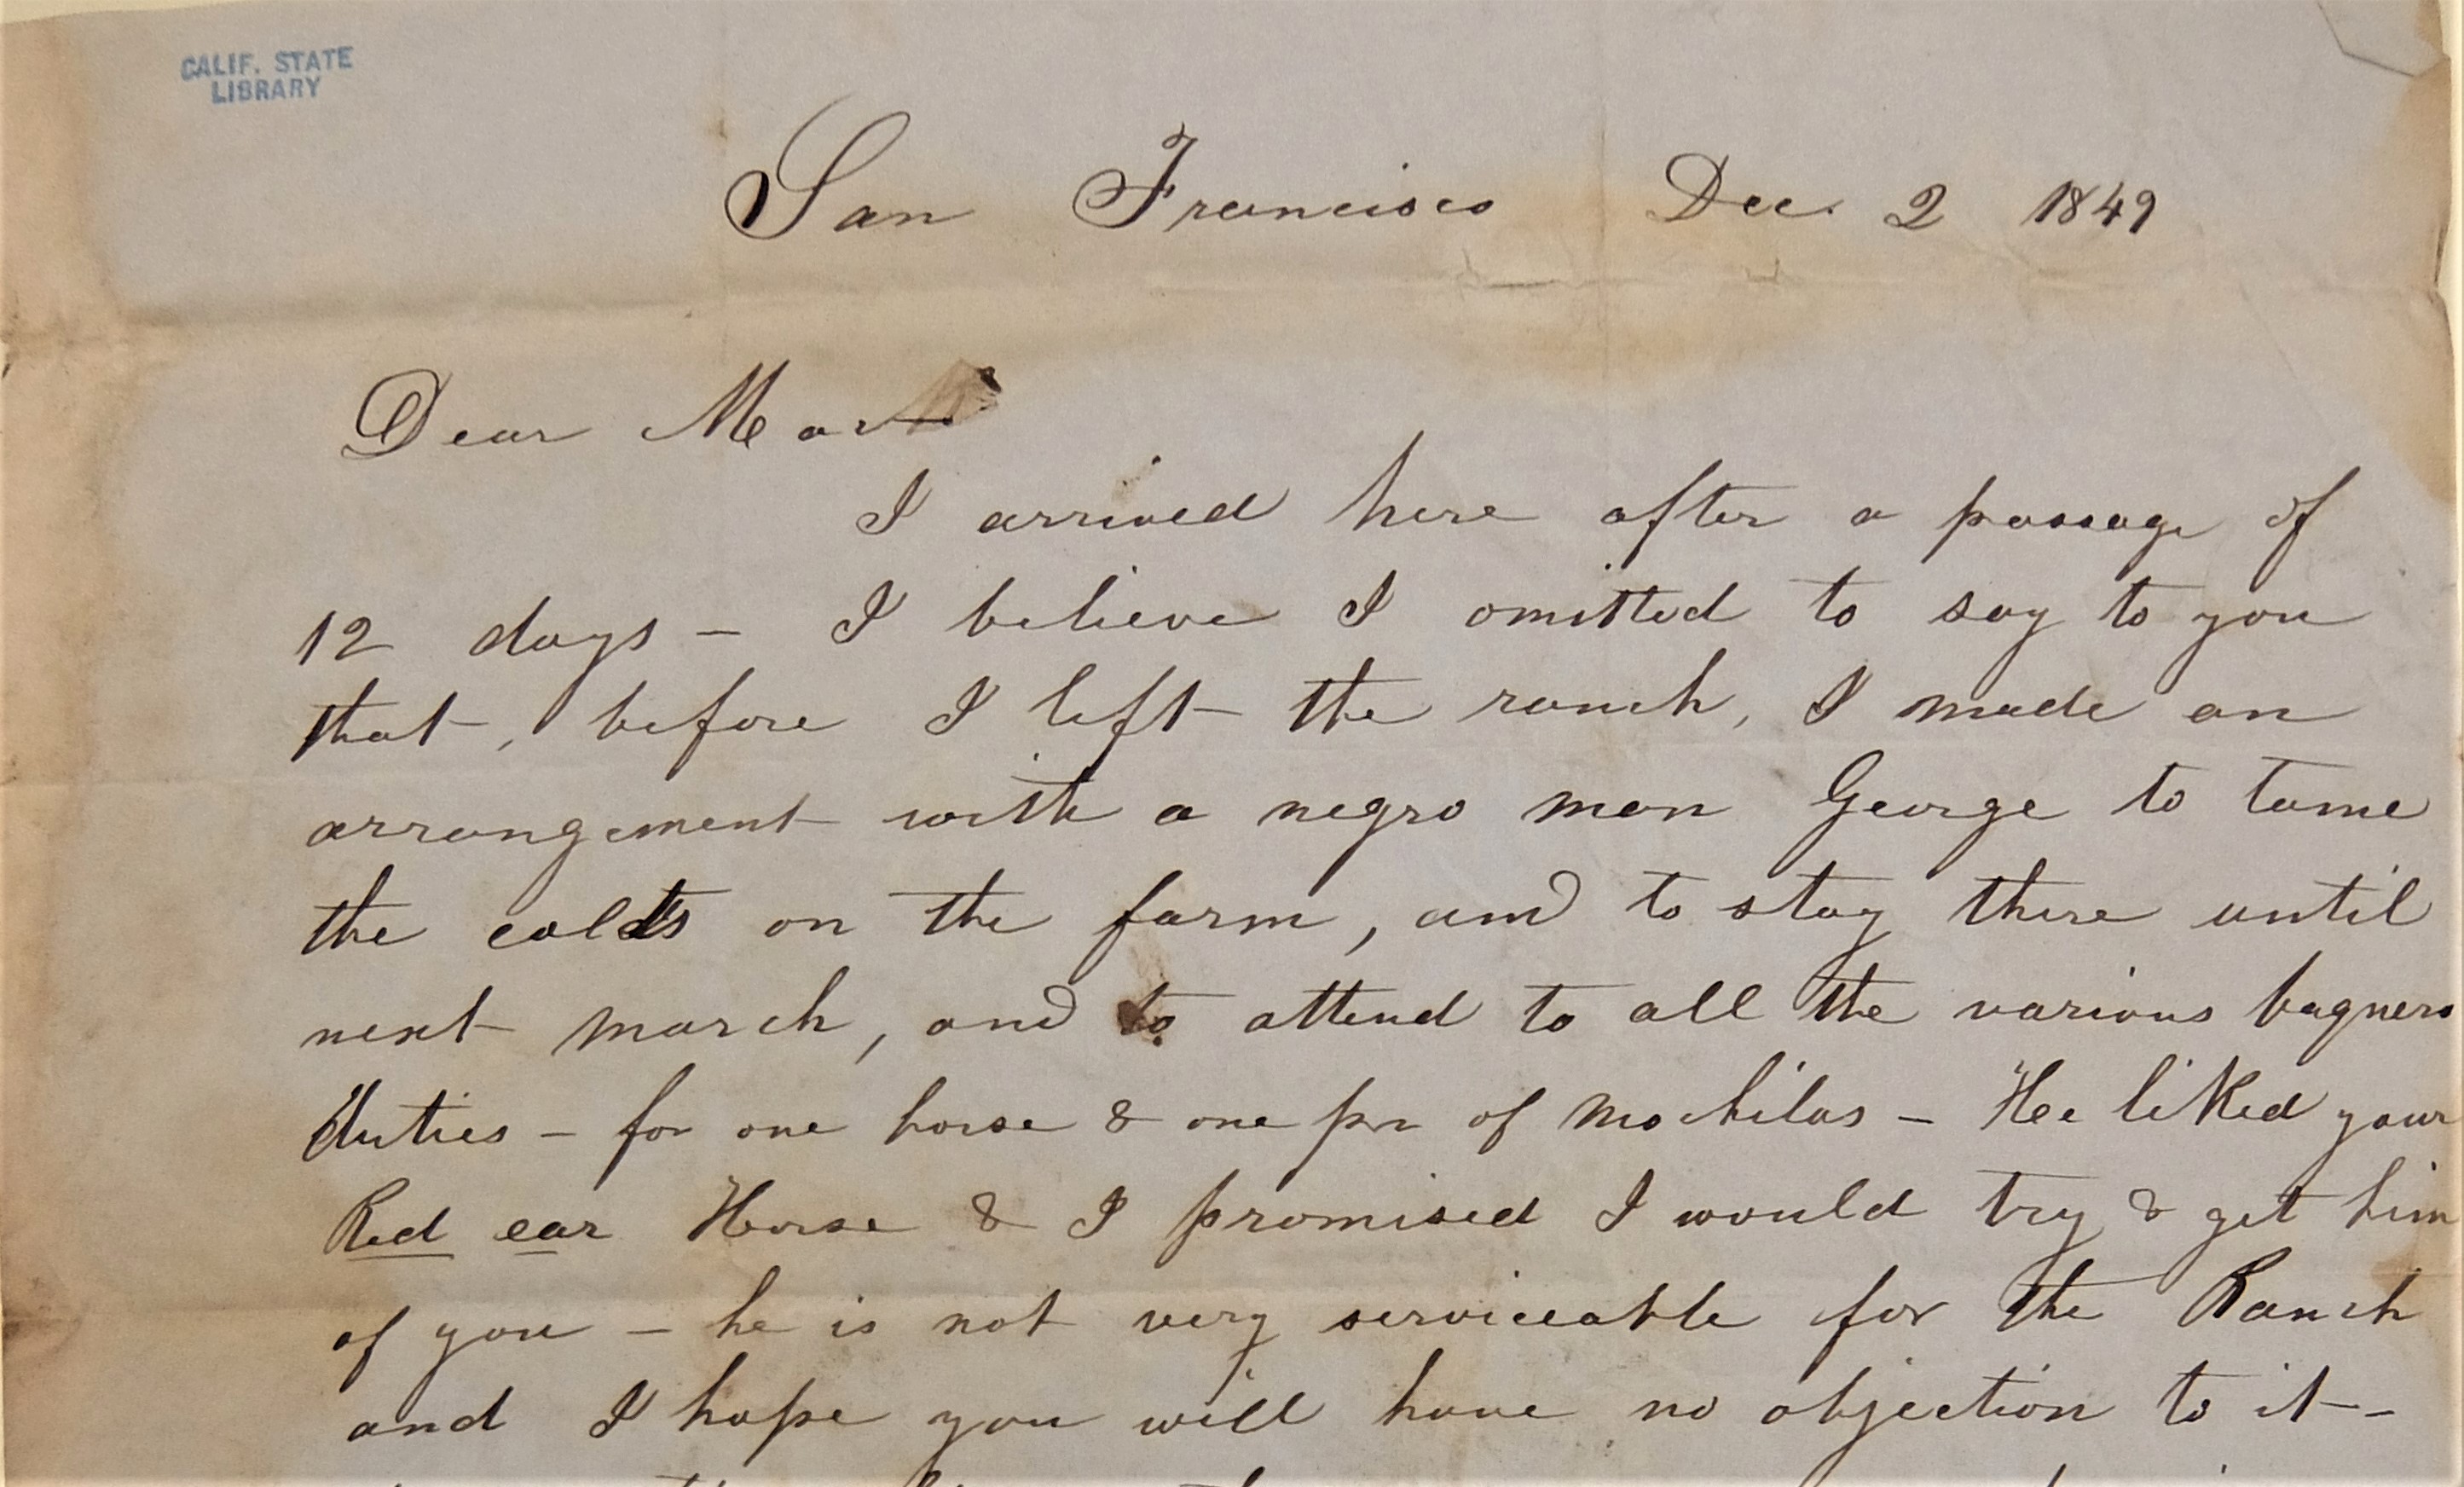 CALIF. STATE
LIBRARY
San Francisco Dec. 2 1849
Dear
I arrived here after a passage of
12 days – I believe I omitted to say to you
that, before I left the ranch, I made an
arrangement with a negro man George to tame
the colts on the farm, and to stay there until
next march, and to attend to all the various vaquero
duties – for one horse & one pr of mochilas – He liked your
Red ear Horse & I promised I would try & get him
of you – he is not very serviceable for the Ranch
and I hope you will have no objection to it –